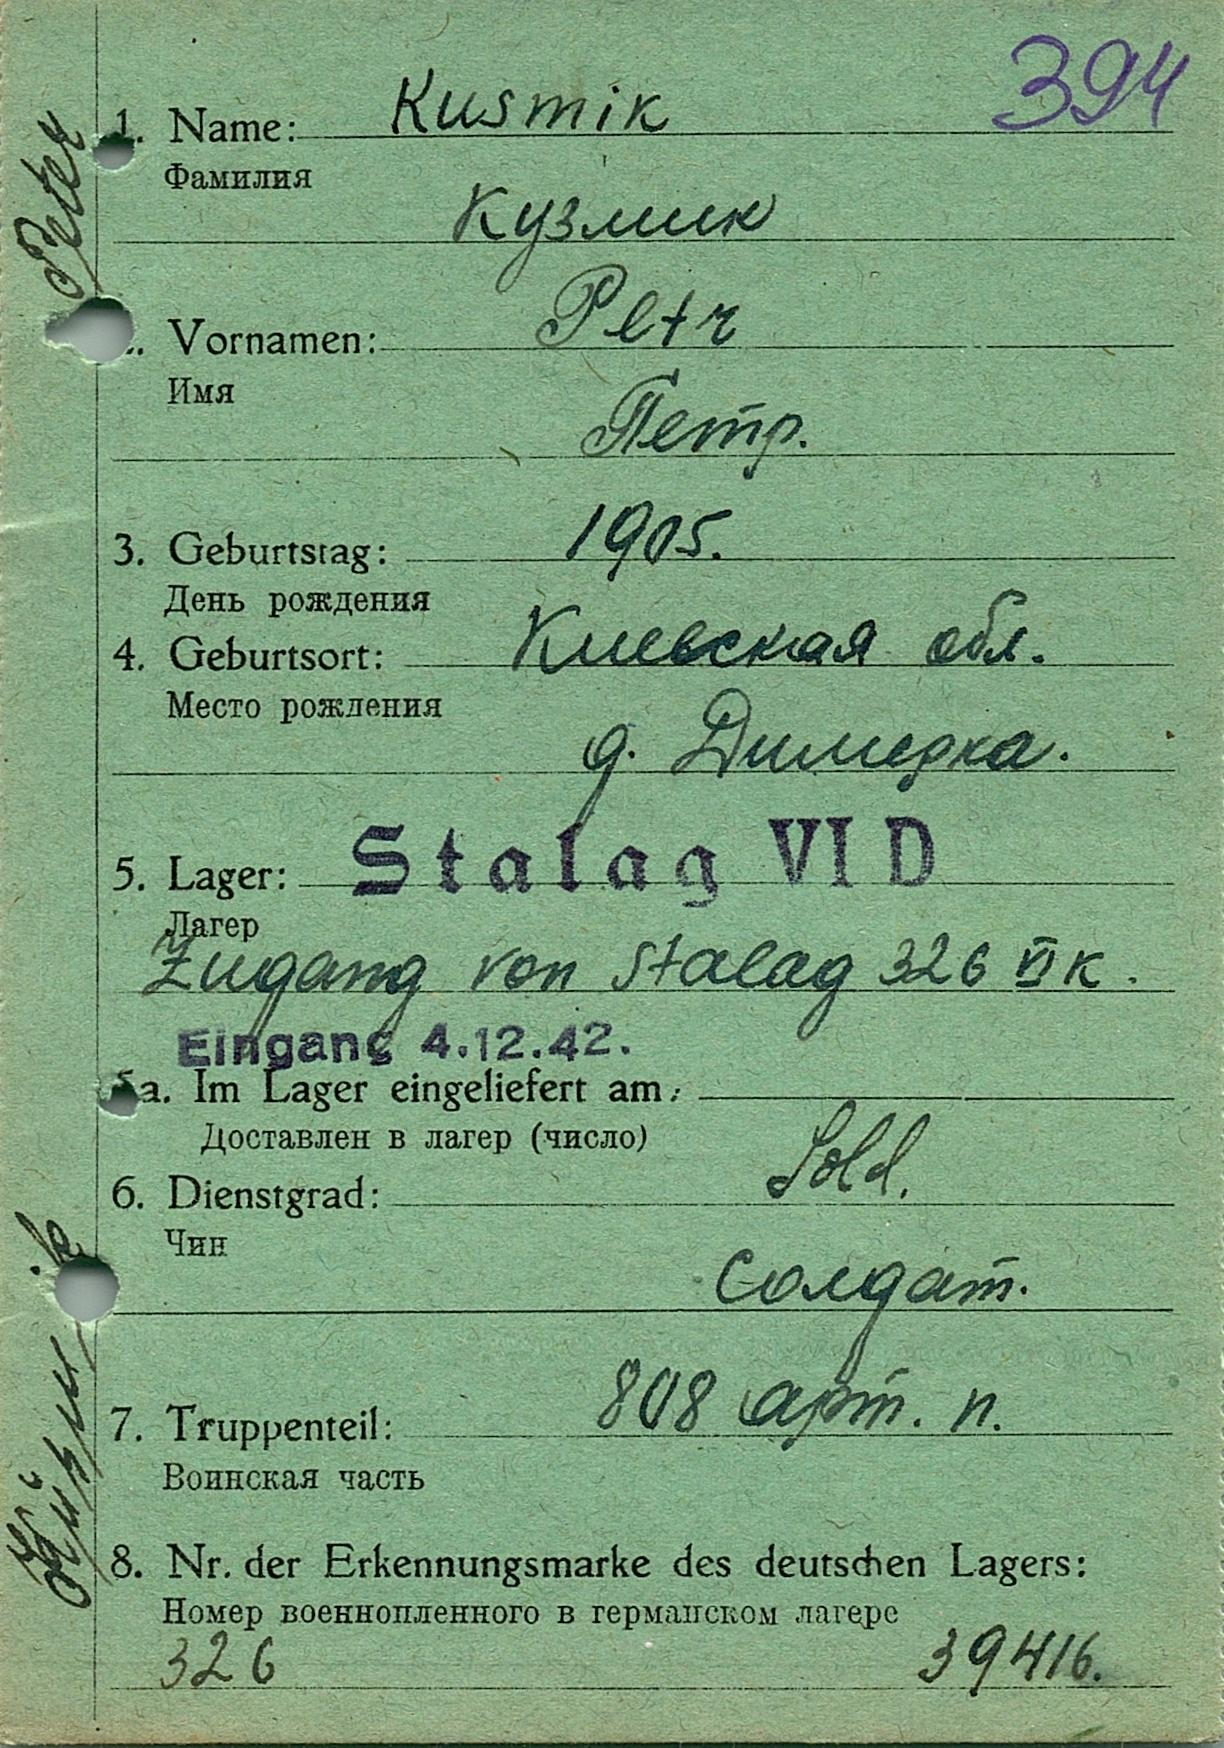 394
1. Name: Kusmik
Фамилия
Кузмик
Vornamen: Petr
Имя
Петр.
3. Geburtstag: 1905.
День рождения
4. Geburtsort: Киевская обл.
Место рождения
д. Димерка.
5. Lager: Stalag VI D
Лагер
Zugang von Stalag 326 VI K.
Eingang 4.12.42.
5a. Im Lager eingeliefert am:
Доставлен в лагер (число)
6. Dienstgrad: Sold.
Чин
Солдат.
7. Truppenteil: 808 арт. п.
Воинская часть
8. Nr. der Erkennungsmarke des deutschen Lagers:
Номер военнопленного в германском лагере
326 39416.
Peter